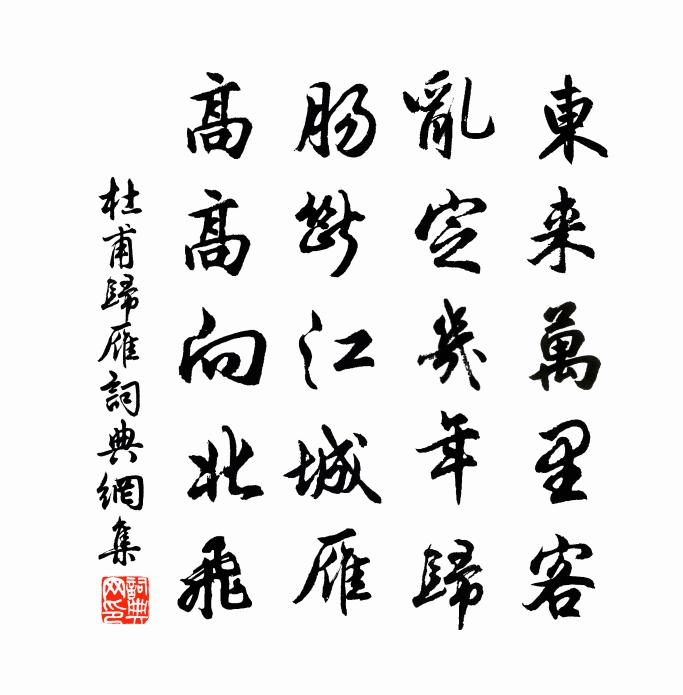 東来萬里客
亂定幾年歸
腸斷江城雁
高高向北飛
杜甫歸雁詞典網集
詞典網印